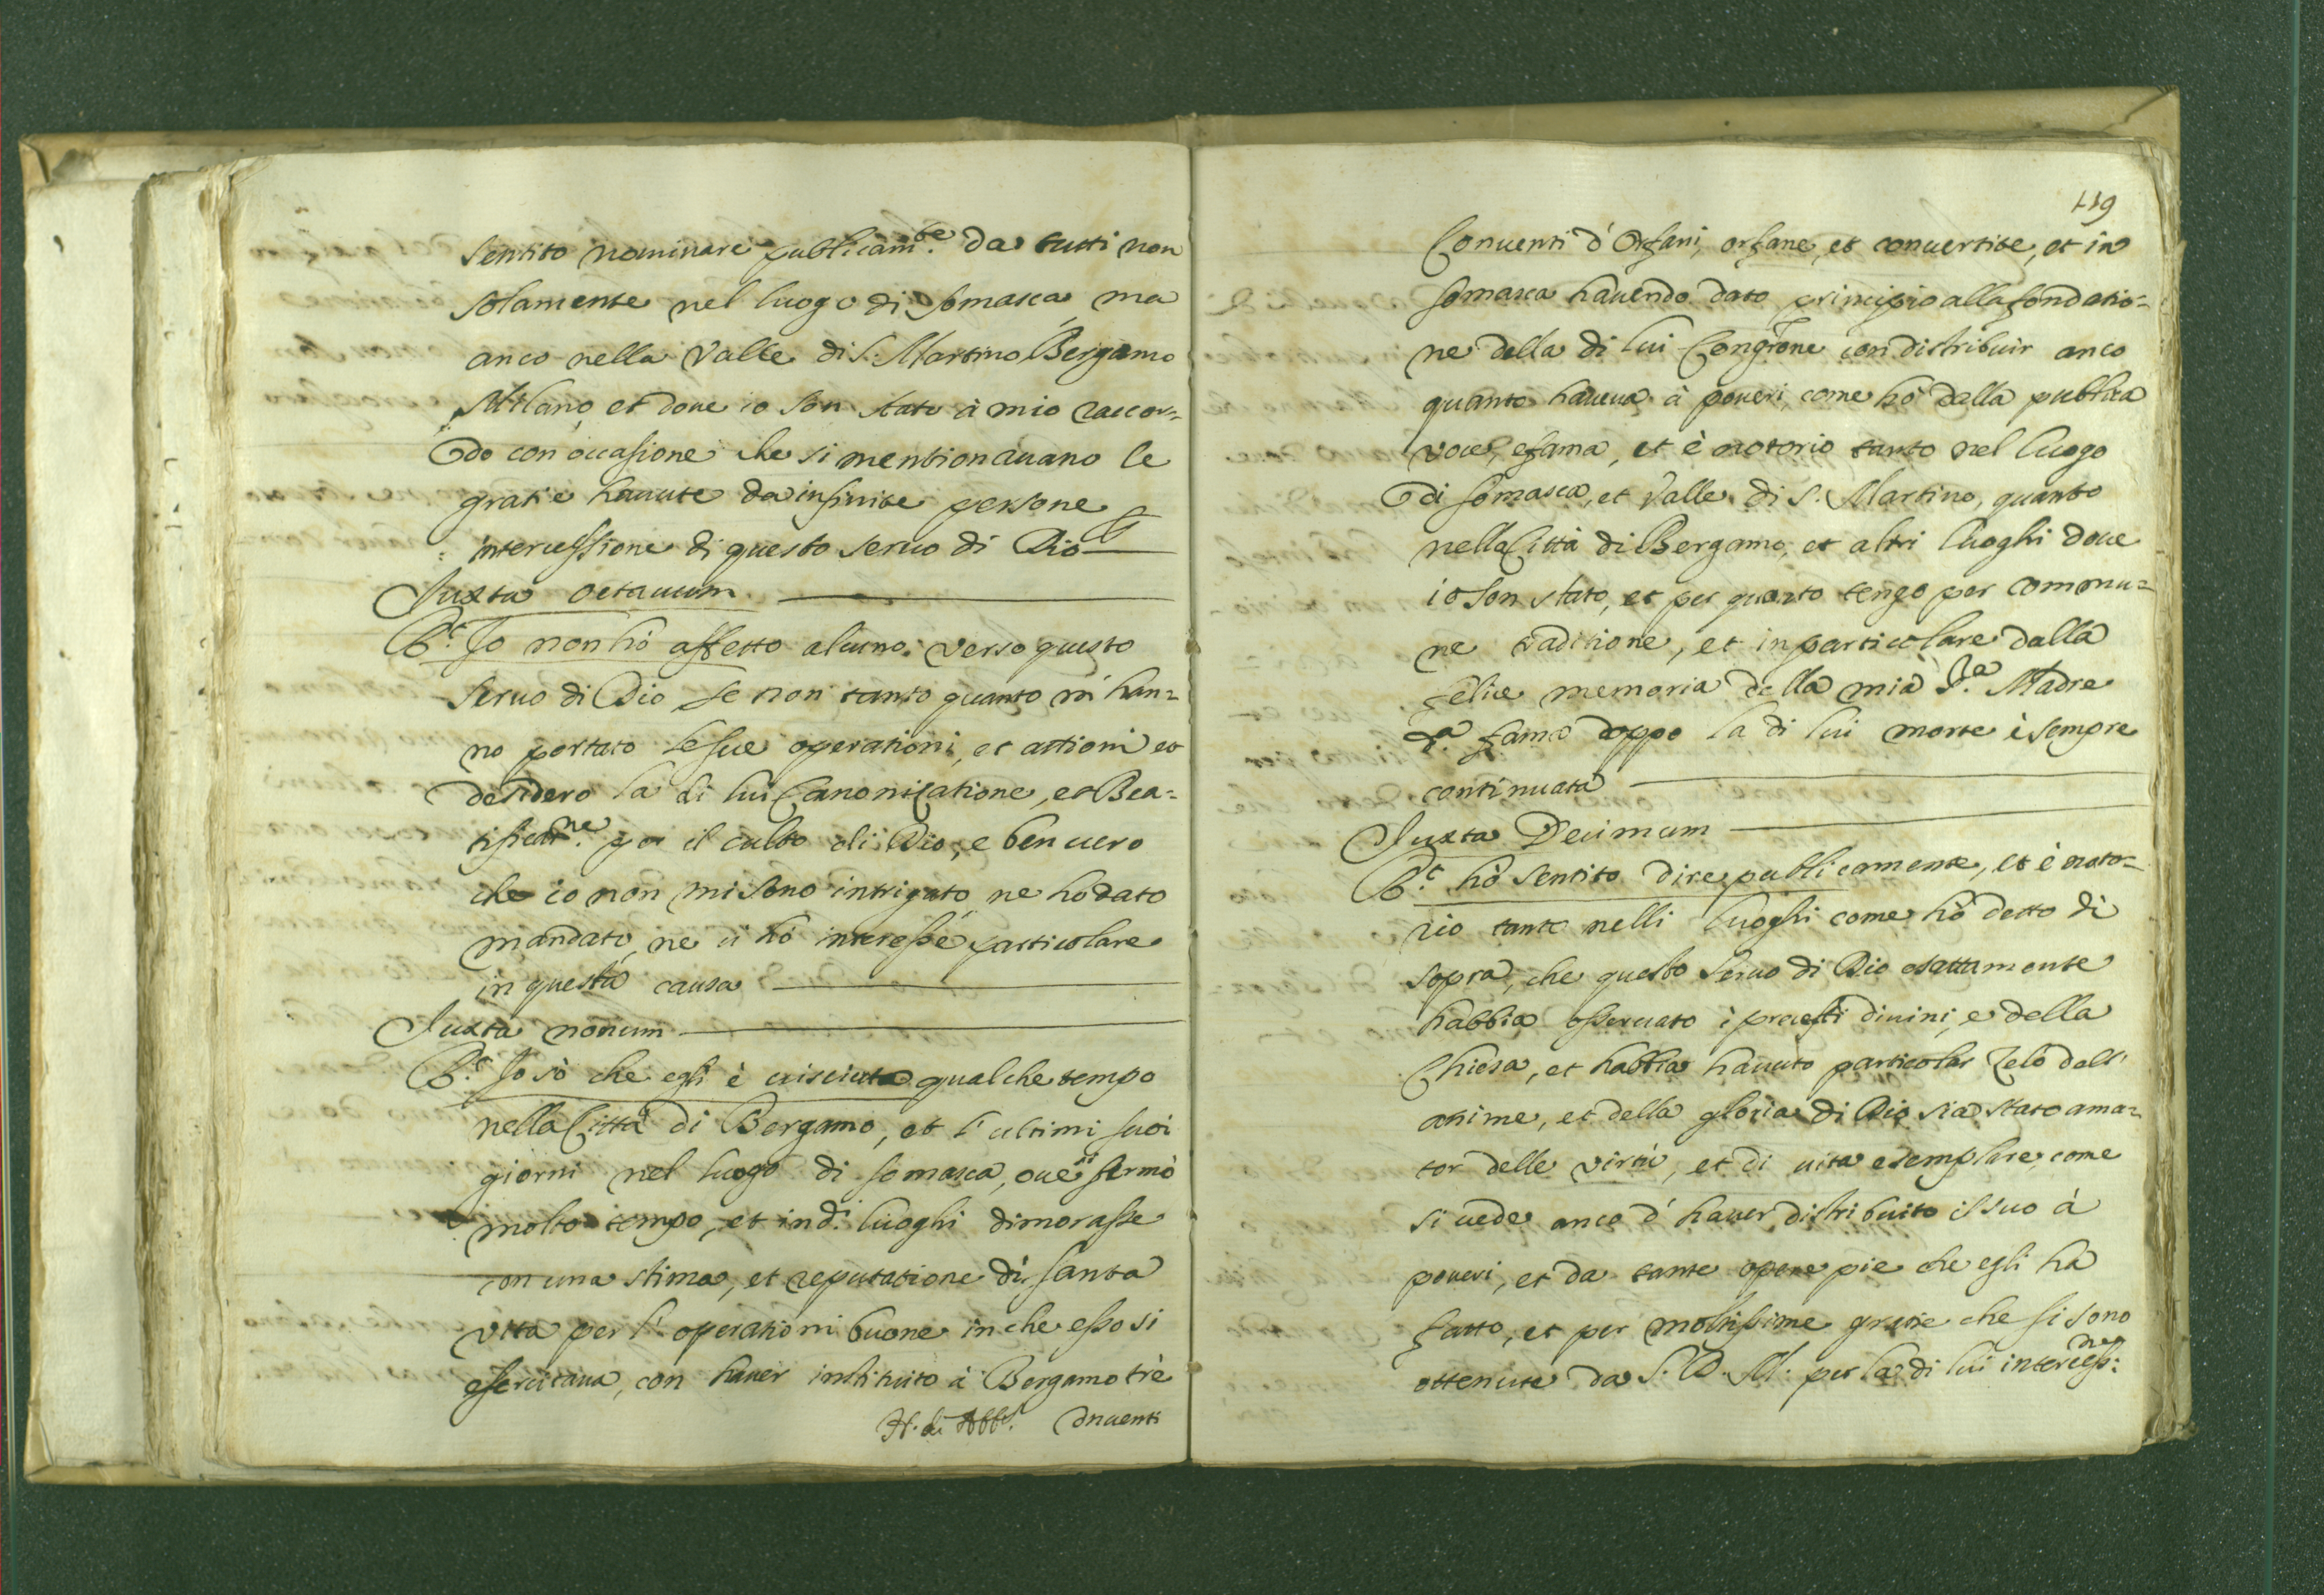 sentito nominare publicam.te da tutti non
solamente nel luogo di Somasca, ma
anco nella Valle di S. Martino, Bergamo
Milano, et doue io son stato à mio raccor=
do con occasione che si mentionauano le
gratie hauute da infinite persone
intercessione di questo seruo di Dio
Iuxta octauum
R.t Io non hò affetto alcuno verso questo
seruo di Dio se non tanto quanto m'han=
no portato le sue operationi, et attioni et
desidero la di lui Canonizatione, et Bea=
tificat.ne per il culto di Dio, e ben uero
che io non mi sono intrigato, ne hò dato
mandato, ne ui hò interesse particolare
in questa causa
Iuxta nonum
R.t Io sò che egli è uisciuto qualche tempo
nella Città di Bergamo, et l'ultimi suoi
giorni nel luogo di Somasca, oue si fermò
molto tempo, et in d.i luoghi dimorasse
con una stima, et reputatione di santa
vita per l'operationi buone in che esso si
essercitaua, con hauer instituito à Bergamo trè
Conuenti
119
Conuenti d'Orfani, orfane, et conuertite, et in
Somasca hauendo dato principio alla fondatio=
ne della di lui Congr.one con distribuir anco
quanto haueua à poueri, come hò dalla publica
voce, e fama, et è notorio tanto nel luogo
di Somasca, et Valle di S. Martino, quanto
nella Città di Bergamo, et altri luoghi doue
io son stato, et per quanto tengo per commu=
ne traditione, et in particolare dalla
felice memoria della mia S.ra Madre
d.a fama doppo la di lui morte è sempre
continuata
Iuxta Decimum
R.t hò sentito dire publicamente, et è noto=
rio tanto nelli luoghi come hò detto di
sopra, che questo seruo di Dio esattamente
habbia osseruato i precetti diuini, e della
Chiesa, et habbia hauuto particolar zelo dell'
anime, et della gloria di Dio, sia stato ama=
tor delle virtù, et di uita esemplare, come
si uede anco d'hauer distribuito il suo à
poueri, et da tante opere pie che egli hà
fatto, et per moltissime gratie che si sono
ottenute da S. D. M. per la di lui intercess.ne